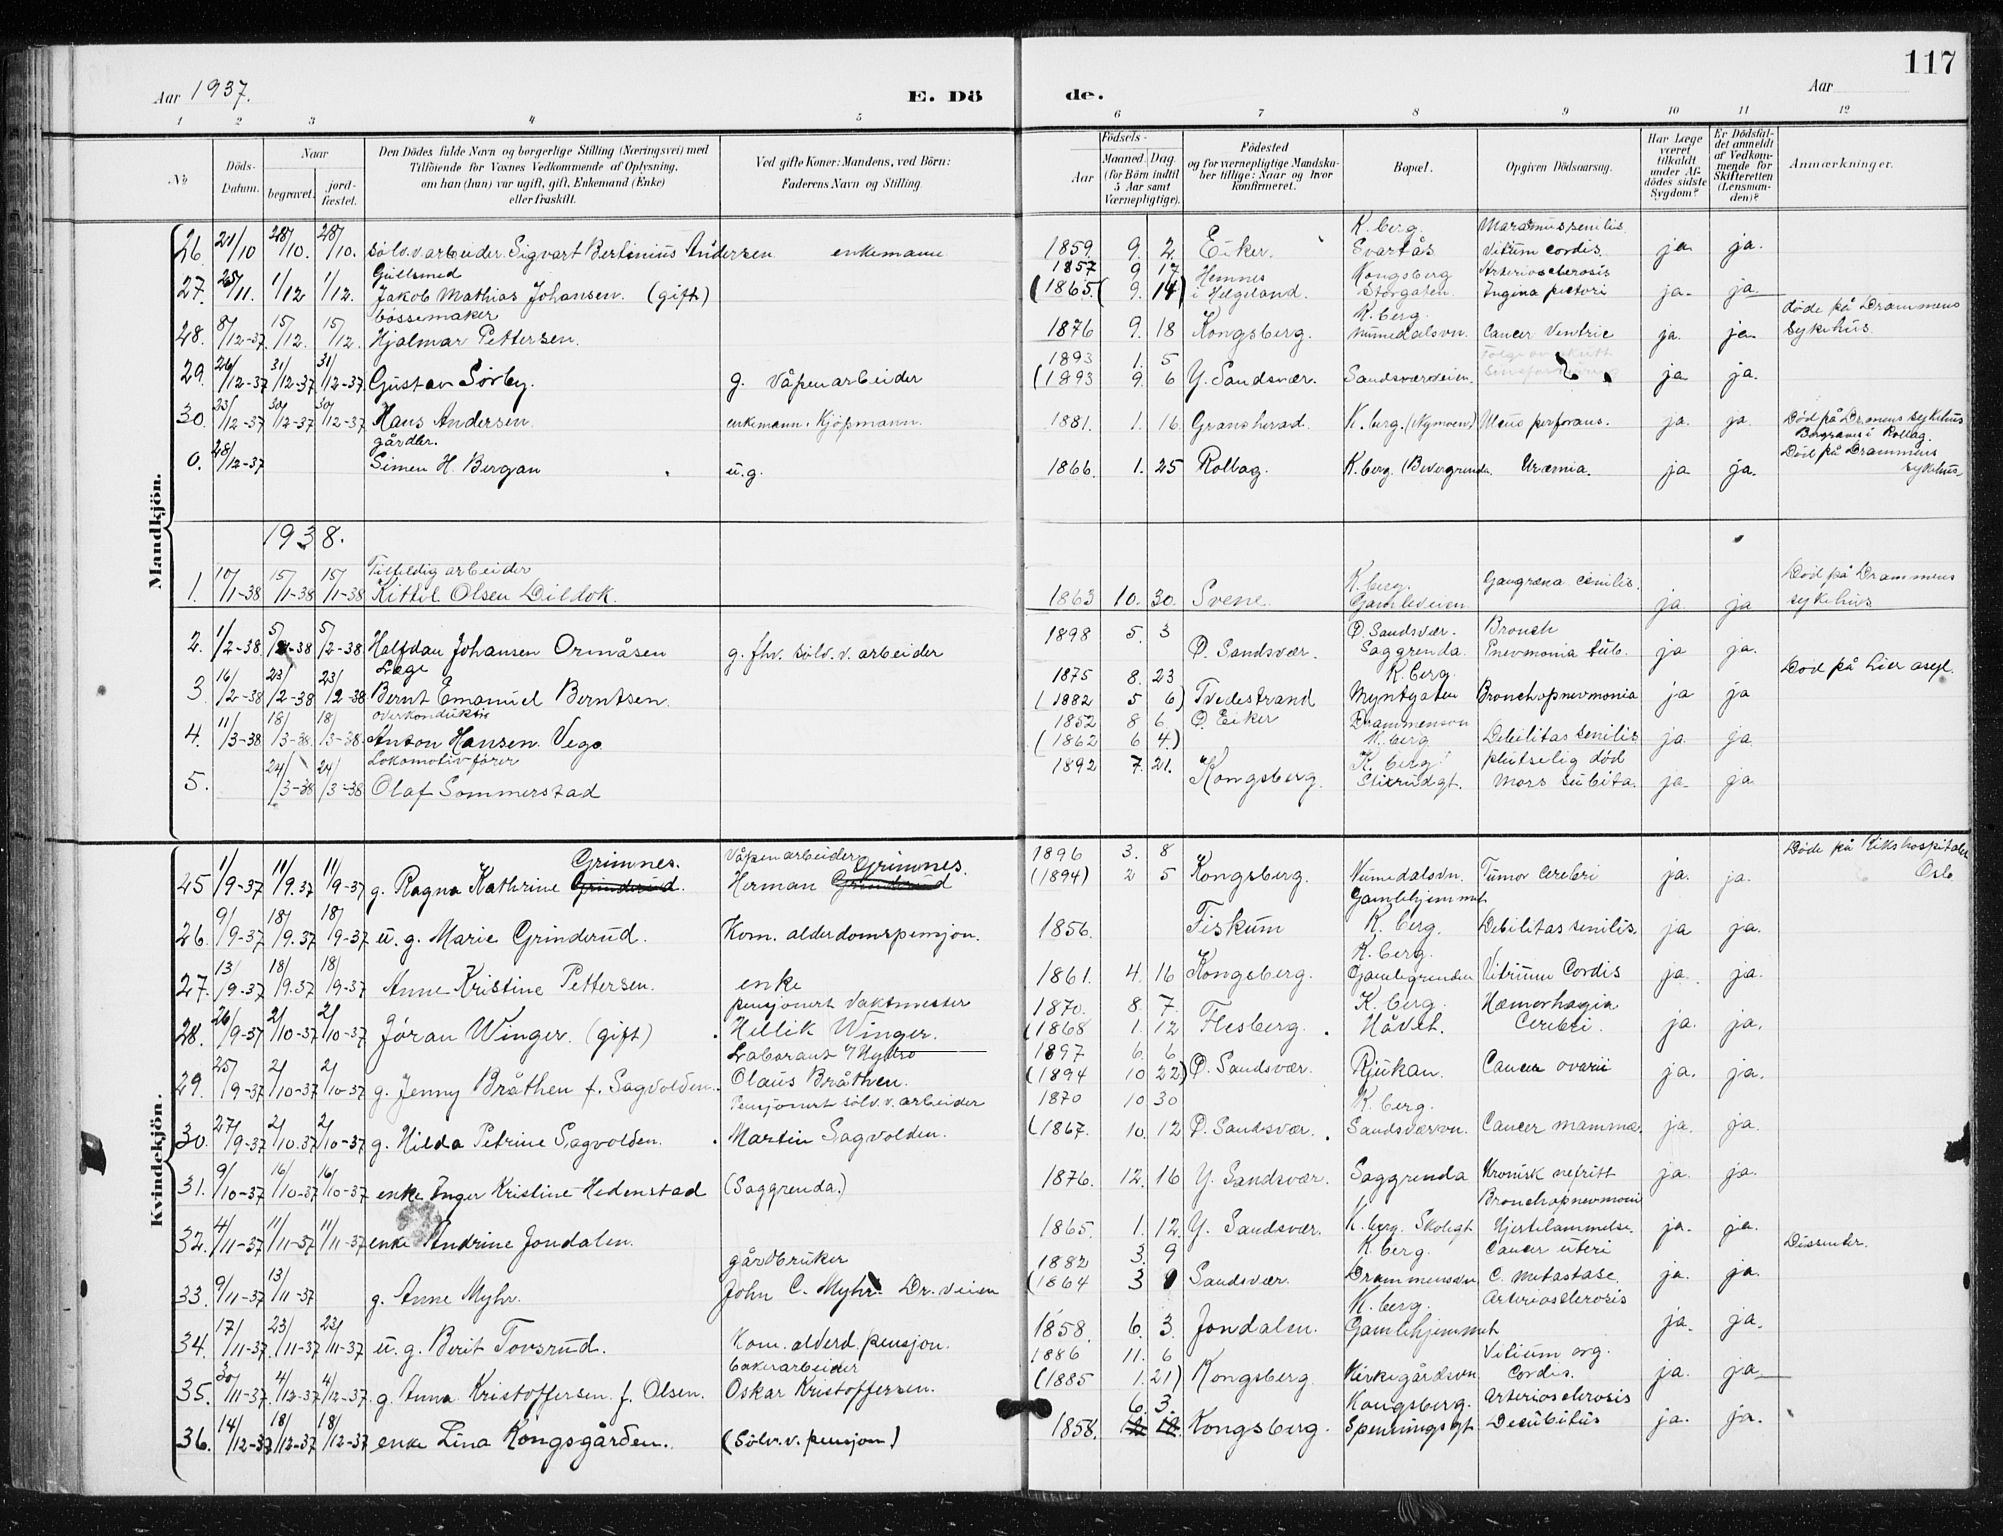 117
Aar 1937.
E. Dö
de.
Aar
1 2 3 4 5 6 7 8 9 10 11 12
No
Döds-Datum.
Naar
begravet.
jord-fæstet.
Den Dödes fulde Navn og borgerlige Stilling (Næringsvei) med
Tilföiende for Voxnes Vedkommende af Oplysning,
om han (hun) var ugift, gift, Enkemand (Enke)
eller fraskilt.
Ved gifte Koner: Mandens, ved Börn:
Faderens Navn og Stilling.
Födsels-
Aar
Maaned. Dag.
(for Börn indtil
5 Aar samt
Værnepligtige).
Födested
og for værnepligtige Mandska-
ber tillige: Naar og hvor
konfirmeret.
Bopæl.
Opgiven Dödsaarsag.
Har Læge
været
tilkaldt
under Af-
dödes sidste
Sygdom?
Er Dödsfal-
det anmeldt
af Vedkom-
mende for
Skifteretten
(Lensman-
den)?
Anmærkninger.
Mandkjön.
26. 21/10 28/10. 28/10. sölv.v.arbeider. Sigvart Bertinius Andersen enkemann 1859. 9. 2. Eiker. K. berg. Svartås Marasmus senilis. Vitium cordis. ja ja.
27. 25/11. 1/12 1/12. Gullsmed Jakob Mathias Johansen. (gift) 1857 9 17 (1865 (9. 14) Hemnes i Helgeland. Kongsberg Storgaten. Arteriosclerosis Angina pectori ja- ja
28. 8/12-37 15/12. 15/12. bössemaker Hjalmar Pettersen. 1876 9. 18 Kongsberg. K. berg. Numedalsvn. Cancer Ventric ja. ja Döde på Drammens Sykehus.
29. 26/12-37 31/12-37 31/12-37 Gustav Sörby. g. Våpenarbeider 1893 1. 5 (1893 9. 6 Y. Sandsvær. Sandsværveien. ja ja.
30. 23/12-37 30/12-37 30/12-37 Hans Andersen. enkemann. Kjöpmann. 1881. 1. 16. Gransherad. K. berg. (Nymoen) Ulcus perforans. ja. ja. Död på Dramens sykehus
0. 28/12-37 gårdbr. Simen H. Bergan u.g. 1866 1. 25 Rollag. K. berg. (Bevergrenda. Uræmia. ja ja. Begraves i Rollag. Död på Drammens sykehus-
1938.
1. 10/1-38 15/1-38 15/1-38 Tilfeldig arbeider Kittil Olsen Dildok. 1863 10. 30. Svene. K. berg. Gamleveien. Gangræna cenilis. ja ja Död på Drammens sykehus
2. 1/2-38 5/2-38 5/2-38 Halfdan Johansen Ormåsen g. fhv. sölv. v. arbeider 1898 5. 3 Ö. Sandsvær. Ö. Sandsvær. Saggrenda. Bronch Pnevmonia tub. ja ja.
3 16/2-38 23/2-38 23/2-38 Læge Bernt Emanuel Berntsen. 1875 8. 23 (1882 5 6) Tvedestrand K. berg. Myntgaten Bronchopnevmonia ja ja Död på Lier asyl.
4. 11/3-38 18/3-38 18/3-38. overkonduktör Anton Hansen Vego 1852 8 6. (1862 6 4.) Ö. Eiker Drammensvn K. berg Debilitas senilis ja ja.
5. 24/3-38 24/3-38 Lokomotivförer Olaf Sommerstad 1892 7. 21. Kongsberg. K. berg. Stixrudgt. plutselig död Mors subita. ja- ja
Kvindekjön.
25 1/9-37 11/9.37 11/9-37 g. Ragna Kathrine Grinderud. Grimnes. Våpenarbeider Herman Grinderud Grimnes. 1896 3. 8 (1894) 2 5 Kongsberg. Numedalsvn. Tumor cerebri ja. ja. Döde på Rikshospitalet Oslo
26. 9/9-37 18/9.37 18/9-37 u. g. Marie Grinderud. Kom. alderdomspensjon. 1856. Fiskum Gamlehjemmet K. berg. Debilitas senilis. ja ja.
27. 13/9-37 18/9.37 18/9-37 Anne Kristine Pettersen. enke 1861. 4. 16 Kongsberg. K. berg. Gamlegrenden Vitium Cordis ja. ja.
28. 26/9-37 2/10-37 2/10-37 Jöran Winger. (gift) pensjonert Vaktmester Hellik Winger. 1870. 8. 7. (1868 1. 12 Flesberg. K. berg. Håvet. Hæmorhagia Cerebri. ja. ja.
29. 25/9-37 2/10-37 2/10-37 g. Jenny Bråthen f. Sagvolden. Laborant v/ Hydro Olaus Bråthen. 1897 6. 6 (1894 10 22) Ö. Sandsvær. Rjukan. Cancer ovarii ja. ja.
30. 27/9-37 2/10.37 2/10-37 g. Hilda Petrine Sagvolden. Pensjonert sölv. v. arbeider Martin Sagvolden. 1870 10 30 (1867. 10. 12 Ö. Sandsvær. K. berg. Sandsværvn. Cancer mamma. ja. ja.
31. 9/10-37 16/10-37 16/10-37 enke Inger Kristine Hedenstad (Saggrenda.) 1876. 12. 16 Y. Sandsvær. Saggrenda Kronisk nefritt ja. ja.
32. 4/11-37 11/11-37 11/11-37 enke Andrine Jondalen. 1865. 1. 12. Y. Sandsvær. K. berg. Skolegt Bronchopnevmoni Hjertelammelse. ja. ja.
33. 9/11-37 13/11-37 g. Anne Myhr. gårdbruker John C. Myhr. Dr. veien 1882 3. 9 (1864 3 Sandsvær. K. berg. Drammensvn Cancer uteri C. metastase. ja. ja. Dissenter.
34. 17/11-37. 23/11-37 23/11-37 u. g. Berit Tovsrud. Kom. alderd. pensjon. 1858. 6. 3. Jondalen. K. berg. Gamlehjemmet Arteriosclerosis ja. ja.
35. 30/11-37 4/12-37 4/12-37 g. Anna Kristoffersen f. Olsen. bakerarbeider Oskar Kristoffersen. 1886 11. 6 (1885 1. 21) Kongsberg. Kirkegårdsvn Vitium org. Cordis. ja. ja
36. 14/12-37 18/12-37 18/12-37 enke Lina Kongsgården. (Sölv. v. pensjon) 1858. 6. 3. Kongsberg. Kongsberg. Spenningsgt Arteriosclerosis Decubitus ja. ja.